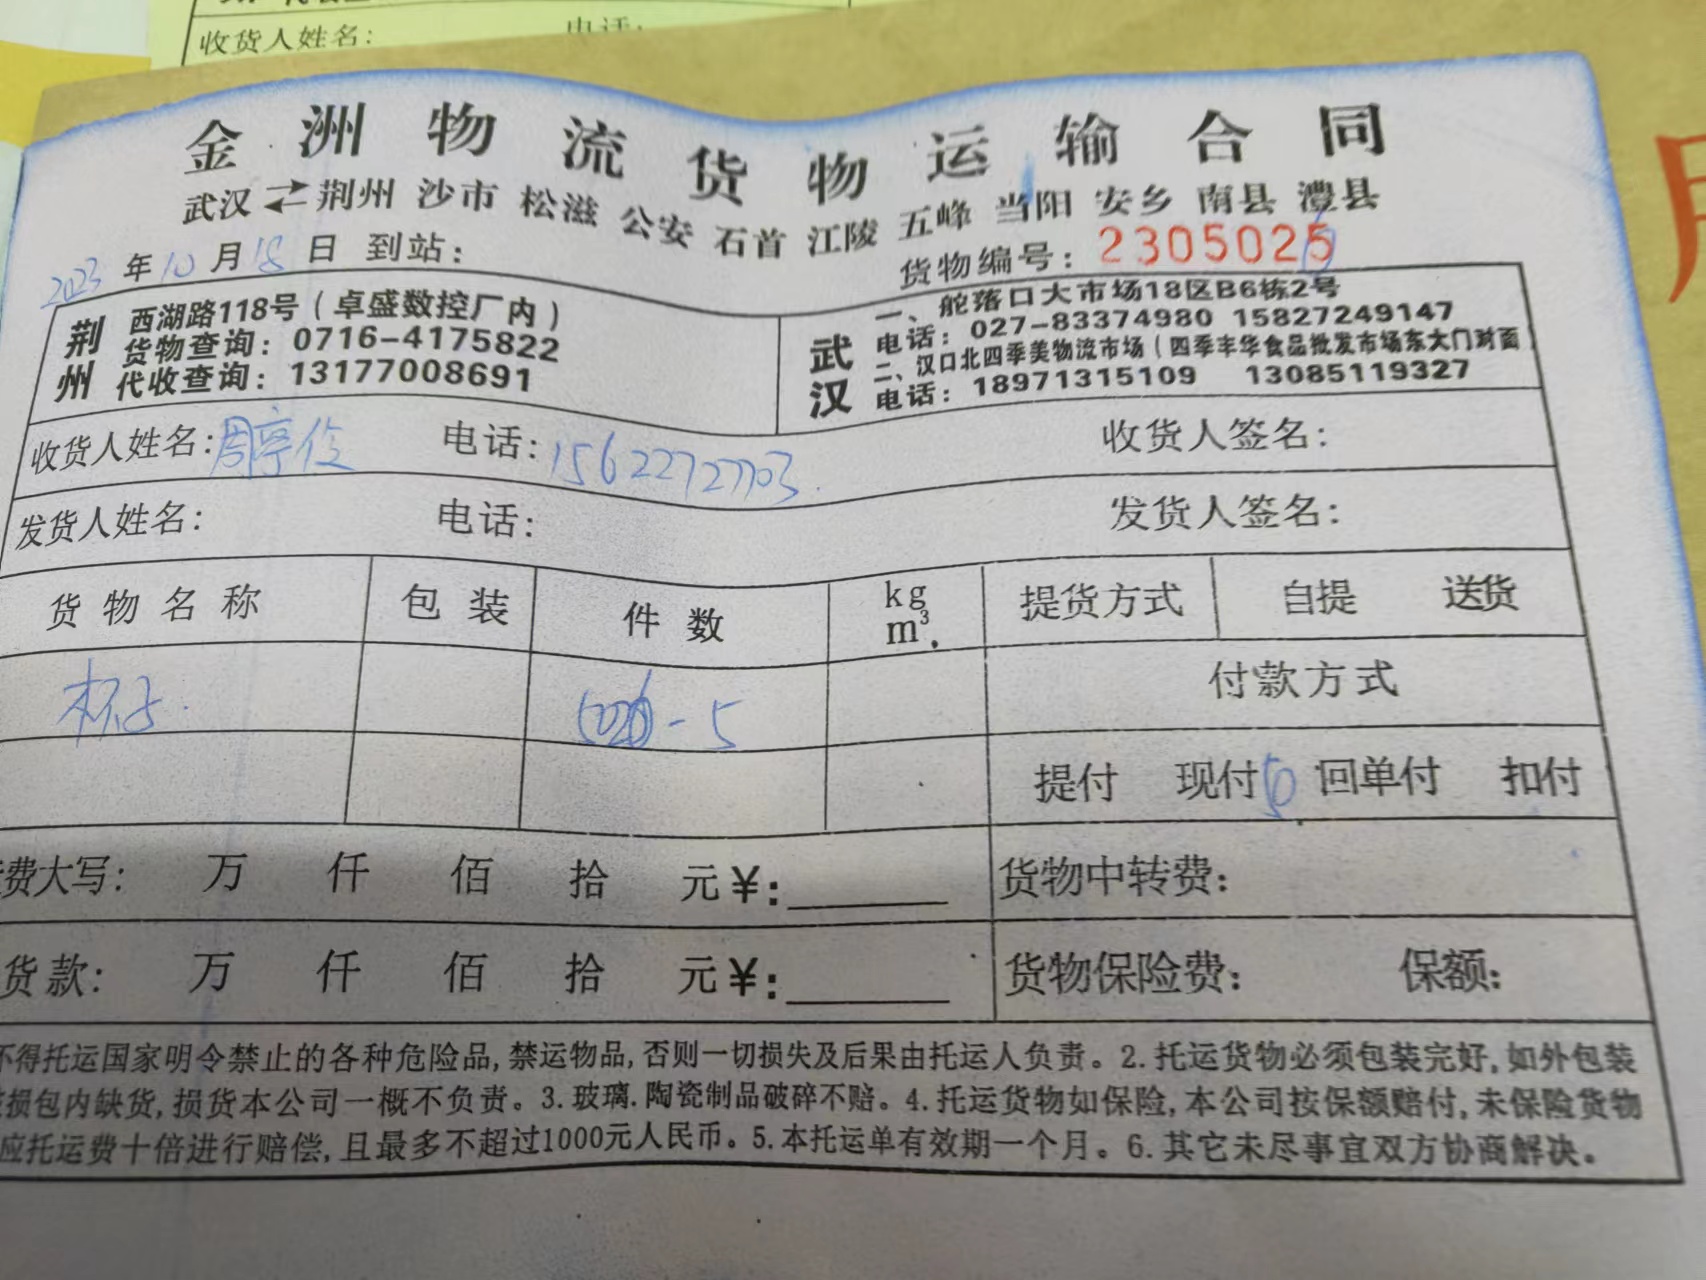 收货人姓名: 电话:
金洲物流货物运输合同
武汉⇄荆州 沙市 松滋 公安 石首 江陵 五峰 当阳 安乡 南县 澧县
2023年10月18日 到站: 货物编号: 2305025
荆州
西湖路118号(卓盛数控厂内)
货物查询: 0716-4175822
代收查询: 13177008691
武汉
一、舵落口大市场18区B6栋2号
电话: 027-83374980 15827249147
二、汉口北四季美物流市场(四季丰华食品批发市场东大门对面)
电话: 18971315109 13085119327
收货人姓名: 电话:15622727703 收货人签名:
发货人姓名: 电话: 发货人签名:
货物名称 包装 件数 kg m³. 提货方式 自提 送货
杯子 -5 付款方式
提付 现付 回单付 扣付
费大写: 万 仟 佰 拾 元¥: 货物中转费:
货款: 万 仟 佰 拾 元¥: 货物保险费: 保额:
不得托运国家明令禁止的各种危险品,禁运物品,否则一切损失及后果由托运人负责。2.托运货物必须包装完好,如外包装
损包内缺货,损货本公司一概不负责。3.玻璃.陶瓷制品破碎不赔。4.托运货物如保险,本公司按保额赔付,未保险货物
应托运费十倍进行赔偿,且最多不超过1000元人民币。5.本托运单有效期一个月。6.其它未尽事宜双方协商解决。